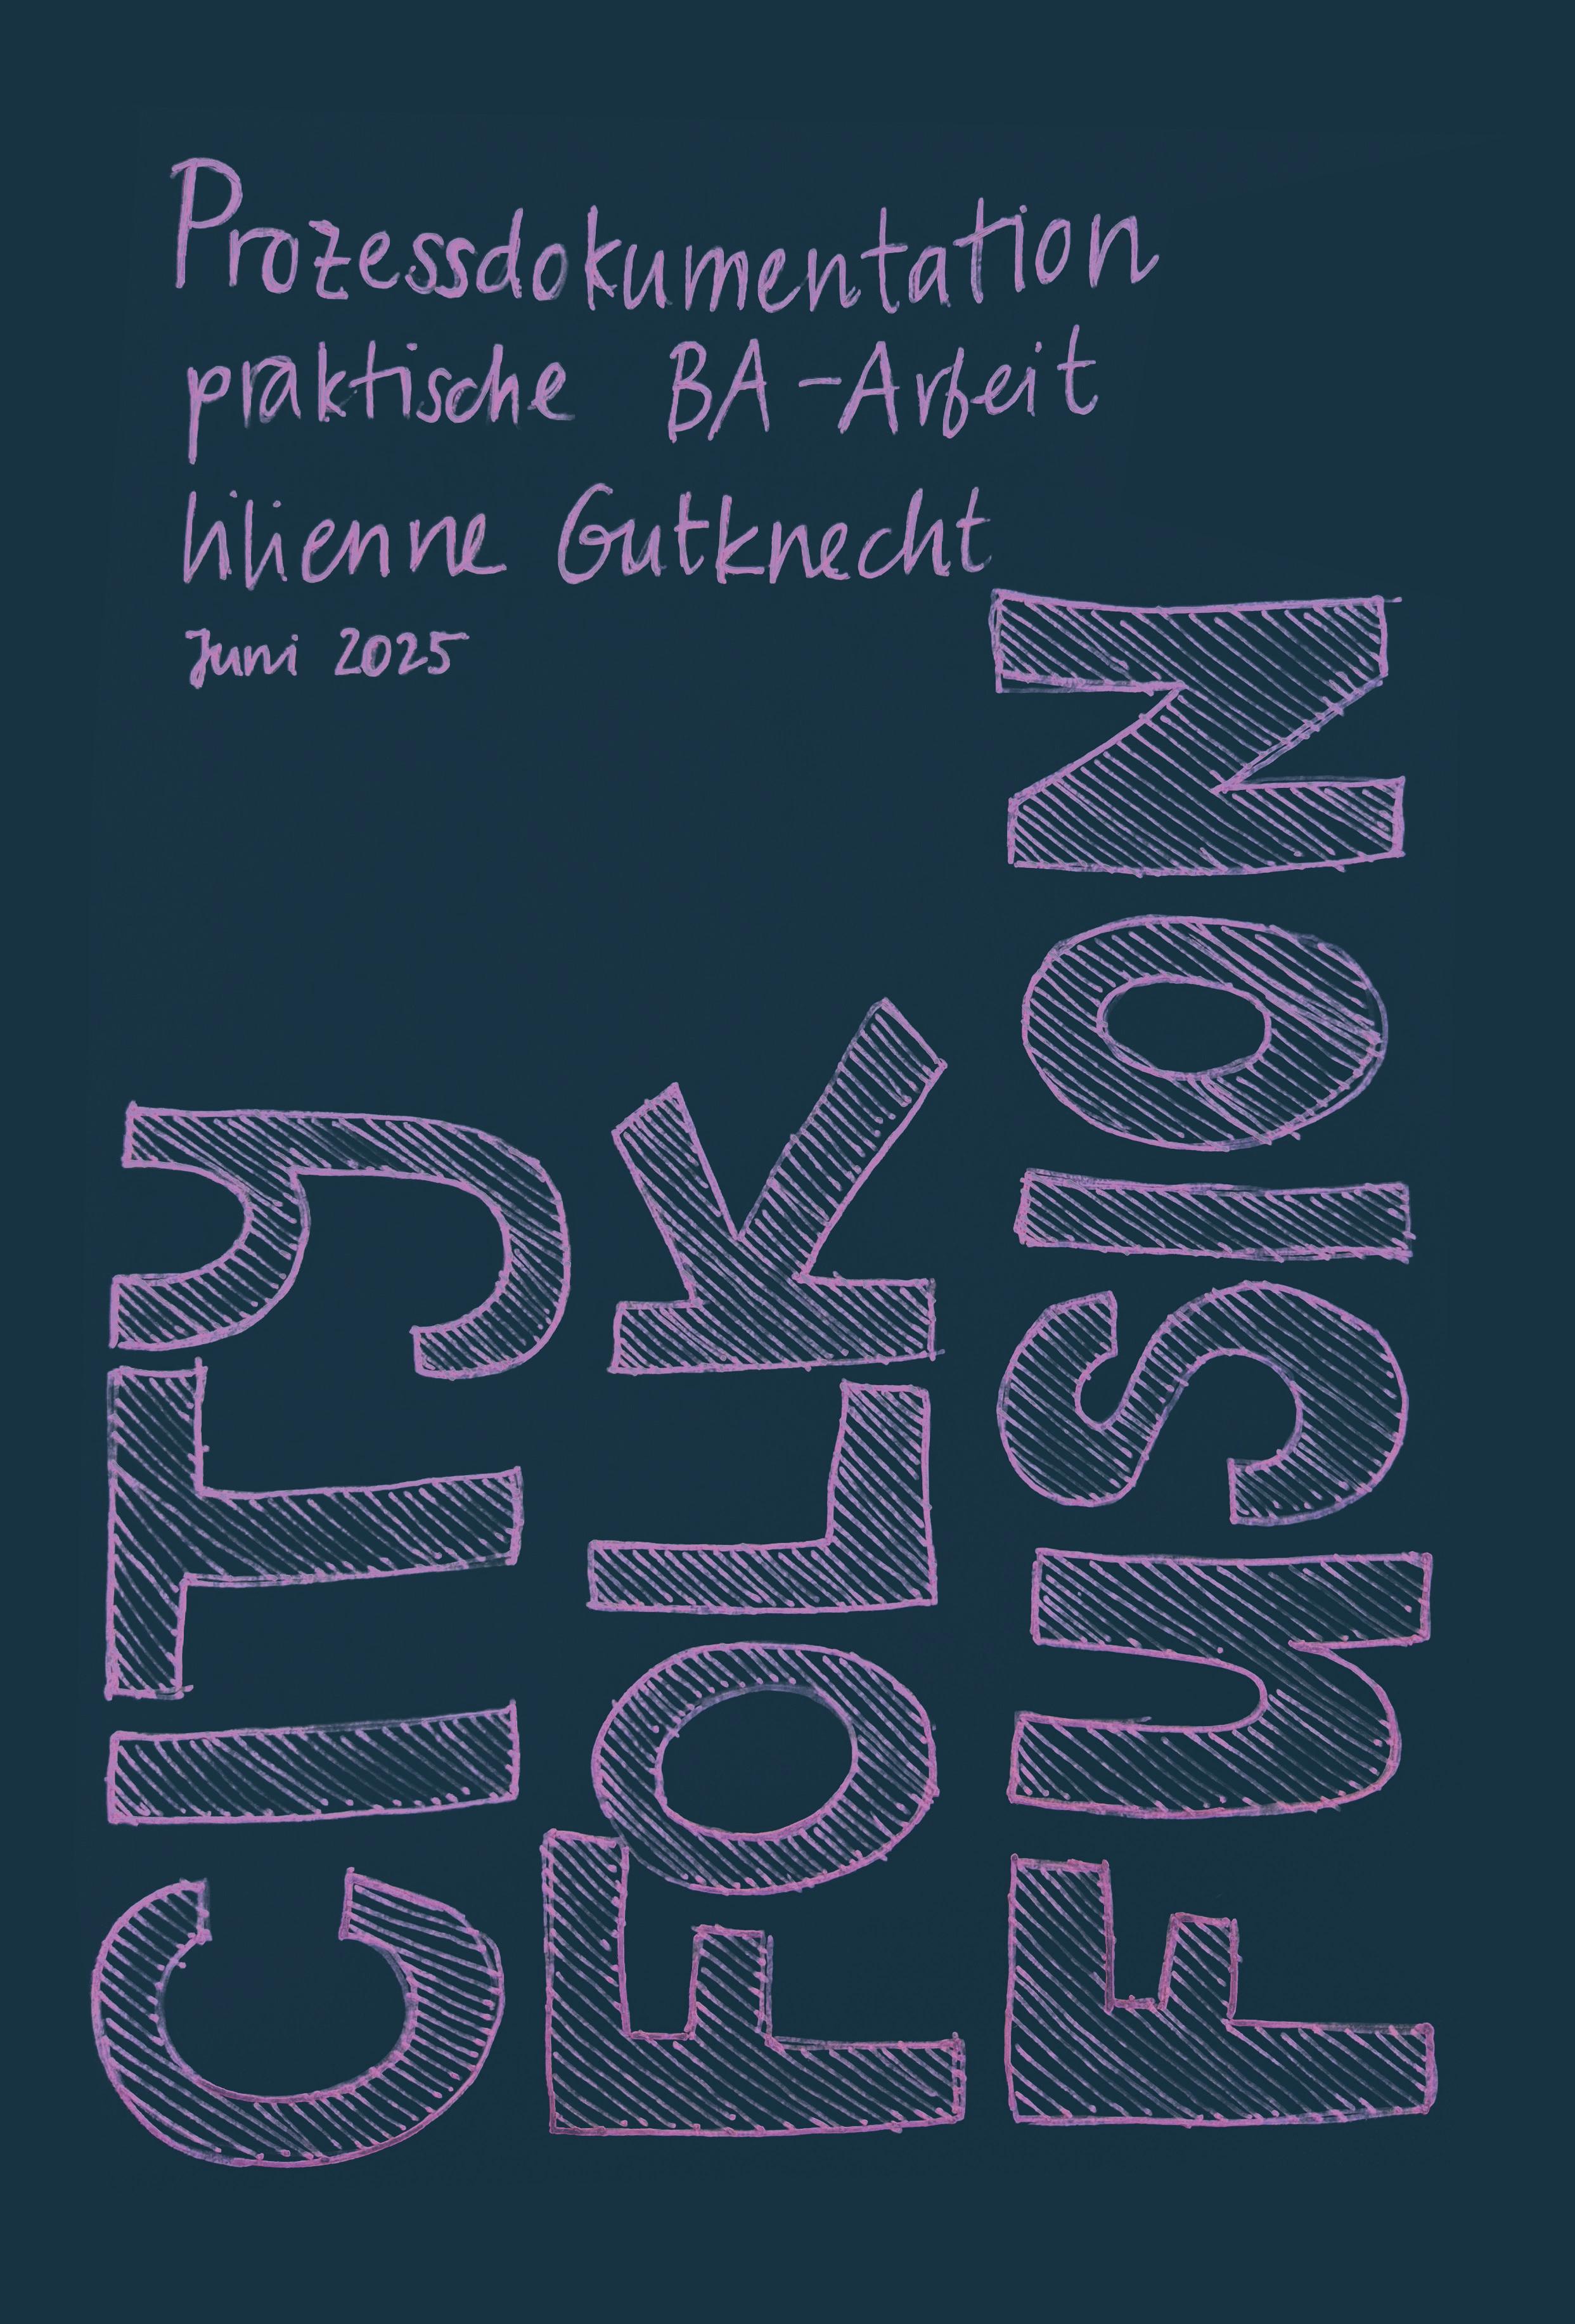 Prozessdokumentation
praktische BA-Arbeit
lilienne Gutknecht
Juni 2025
CITY
FOLK
FUSION